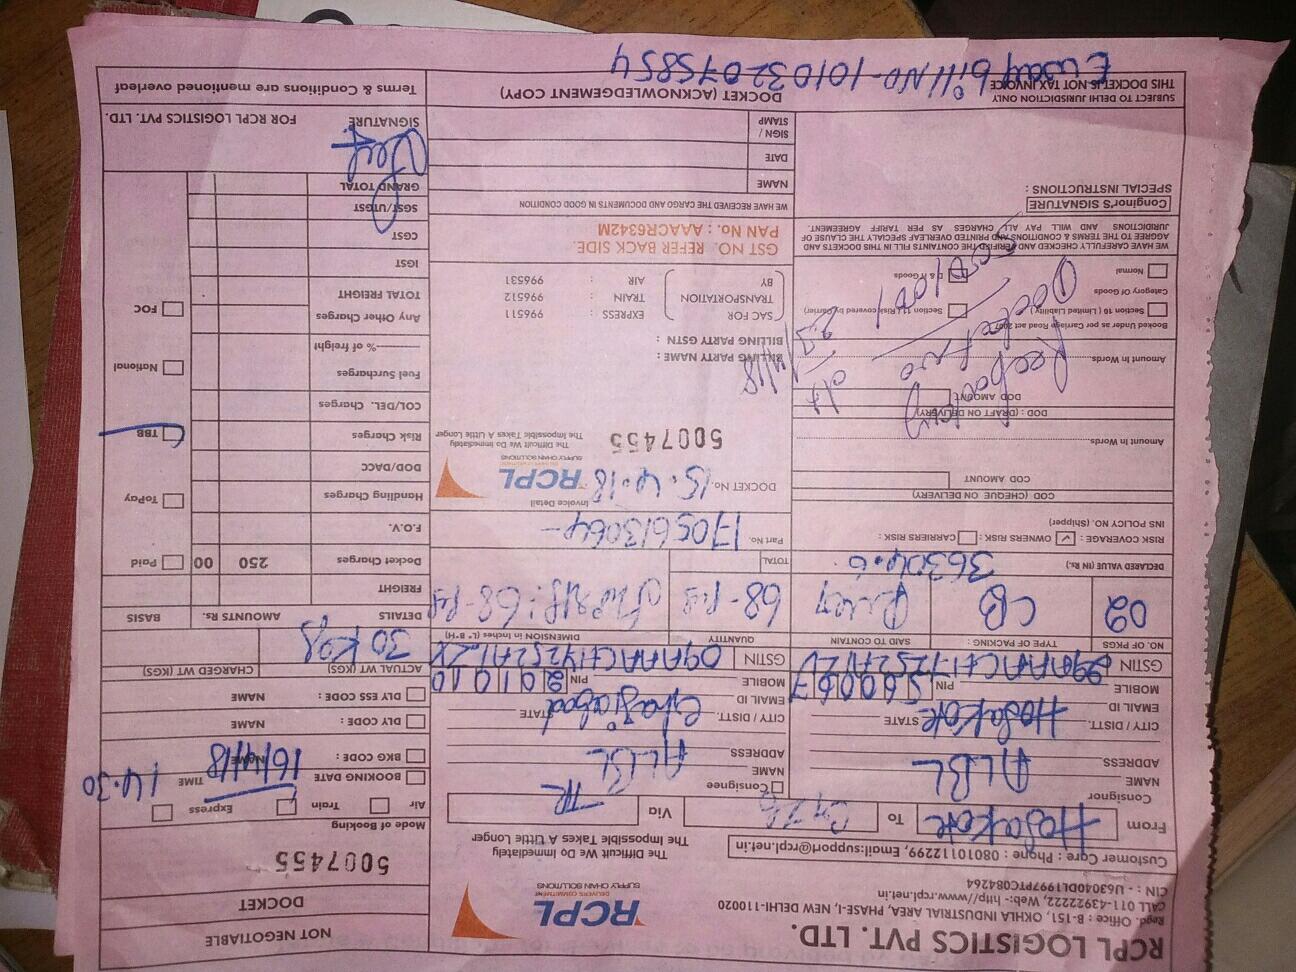 RCPL LOGISTICS PVT. LTD.
Regd. Office : B-151, OKHLA INDUSTRIAL AREA, PHASE-I, NEW DELHI-110020
CALL 011-43922222, Web:- http//www.rcpl.net.in
CIN : - U63040DL1997PTC084264
Customer Care : Phone : 08010112299, Email:support@rcpl.net.in
RCPL
DELIVERS COMMITMENT
SUPPLY CHAIN SOLUTIONS
The Difficult We Do Immediately
The Impossible Takes A Little Longer
NOT NEGOTIABLE
DOCKET
5007455
Mode of Booking
Air
Train
Express
From Hosakote
To
Via TR
Consignor
NAME ALBL
ADDRESS
CITY / DISTT. Hosakote STATE
EMAIL ID
MOBILE PIN 560067
GSTIN
Consignee
NAME ALBL
ADDRESS
CITY / DISTT. Ghaziabad STATE
EMAIL ID
MOBILE PIN 201010
GSTIN
BOOKING DATE 16/4/18 TIME 14.30
BKG CODE : NAME
DLY CODE : NAME
DLY ESS CODE : NAME
ACTUAL WT (KGS) CHARGED WT (KGS)
30 Kgs
NO. OF PKGS TYPE OF PACKING : SAID TO CONTAIN QUANTITY DIMENSION in Inches (L* B*H)
02 CB 68-Pcs
TOTAL
DECLARED VALUE (in Rs.) 36304.6
RISK COVERAGE : OWNERS RISK : CARRIERS RISK :
INS POLICY NO. (Shipper)
Part No. 1705613064
Invoice Detail
COD (CHEQUE ON DELIVERY)
COD AMOUNT
Amount In Words
DOD : (DRAFT ON DELIVERY)
DOD AMOUNT
Amount In Words
DOCKET No. 15.4.18
RCPL
SUPPLY CHAIN SOLUTIONS
5007455
The Difficult We Do Immediately
The Impossible Takes A Little Longer
DETAILS AMOUNTS Rs. BASIS
FREIGHT
Docket Charges 250 00
F.O.V.
Handling Charges
DOD/DACC
Risk Charges
COL/DEL. Charges
Fuel Surcharges
% of freight
Any Other Charges
TOTAL FREIGHT
IGST
CGST
SGST/UTGST
GRAND TOTAL
Paid
ToPay
TBB
National
FOC
Booked Under as per Carriage Road act 2007
Section 10 ( Limited Liability )
Section 11 (Risk covered by Carrier)
Category Of Goods
Normal
D & H Goods
Docket no
BILLING PARTY NAME :
BILLING PARTY GSTN :
SAC FOR TRANSPORTATION BY
EXPRESS : 996511
TRAIN : 996512
AIR : 996531
GST NO. REFER BACK SIDE.
PAN No. : AAACR6342M
WE HAVE CAREFULLY CHECKED AND VERIFIED THE CONTAINTS FILL IN THIS DOCKETS AND
AGGREE TO THE TERMS & CONDITIONS AND PRINTED OVERLEAF SPECIALY THE CLAUSE OF
JURISDICTIONS AND WILL PAY ALL CHARGES AS PER TARIFF AGREEMENT.
Conginor's SIGNATURE
SPECIAL INSTRUCTIONS :
WE HAVE RECEIVED THE CARGO AND DOCUMENTS AND GOOD CONDITION
NAME
DATE
SIGN / STAMP
SIGNATURE FOR RCPL LOGISTICS PVT. LTD.
SUBJECT TO DELHI JURISDICTION ONLY
THIS DOCKET IS NOT TAX INVOICE
DOCKET (ACKNOWLEDGEMENT COPY)
Terms & Conditions are mentioned overleaf
Eway bill NO-101032075854